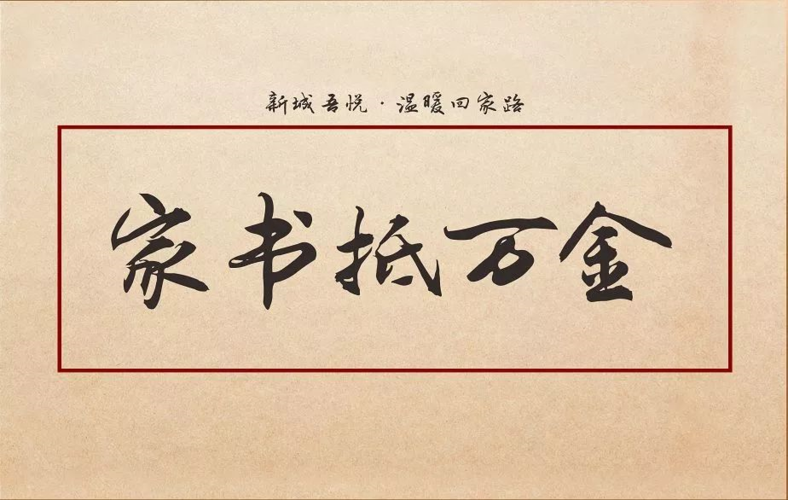 新城吾悦·温暖回家路
家书抵万金